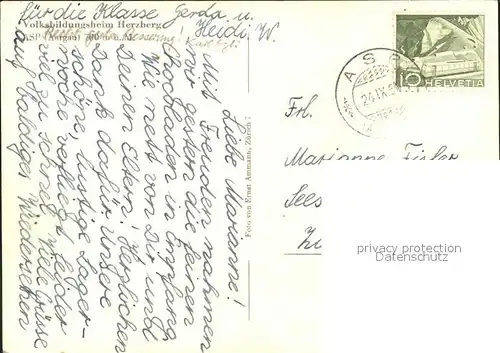 für die Klasse Gerda u.
Heidi W.
Volksbildungsheim Herzberg
ASP (Aargau) 700 m ü. M.
Karl
Liebe Marianne!
Mit Freuden nahmen
wir gestern die feinen
Chocoladen in Empfang
Wie nett von Dir und
Deinen Eltern! Herzlichen
Dank dafür unsere
schöne, lustige Lager-
woche verfliegt leider
viel zu schnell. Viele Grüsse
auf baldiges Wiedersehen
Foto von Ernst Ammann, Zürich 7
ASP
24.IX.
10
HELVETIA
Frl.
Marianne Fisler
Sees
privacy protection
Datenschutz